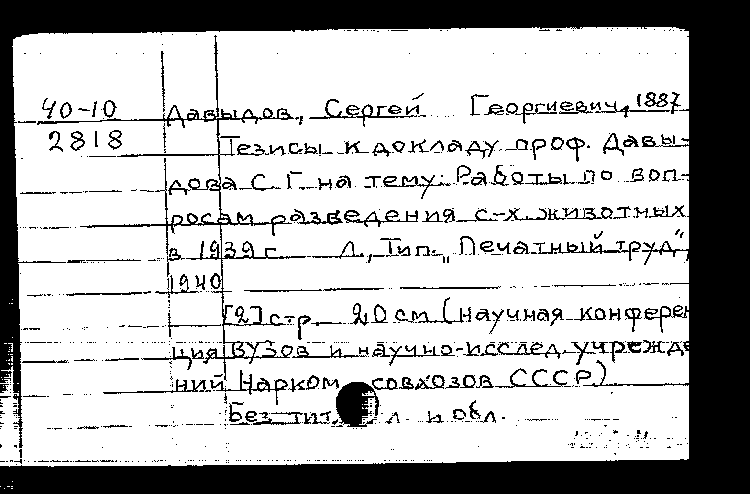 40-10
2818
Давыдов, Сергей Георгиевич, 1887
Тезисы к докладу проф. Давы-
дова С. Г. на тему: Работы по воп-
росам разведения с-х. животных
в 1939 г. Л., Тип. „Печатный труд",
1940
[2] стр. 20 см (Научная конферен
ция ВУЗов и научно-исслед. учрежде
ний Нарком совхозов СССР)
Без тит. л. и обл.